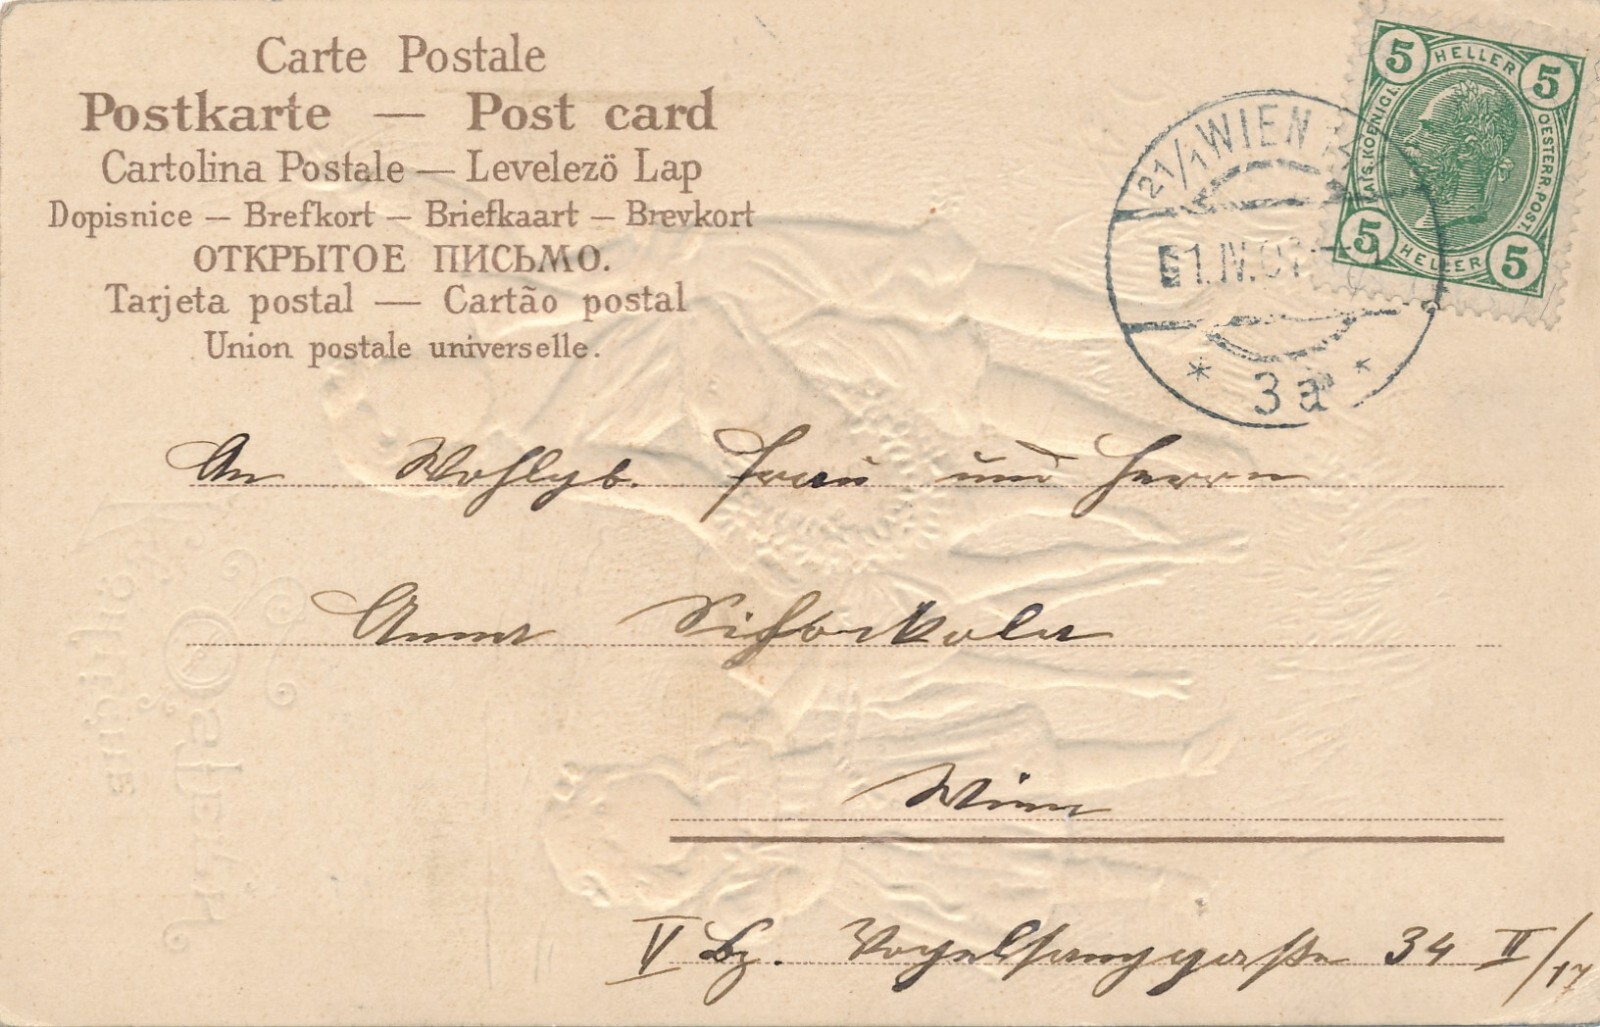 Carte Postale
Postkarte — Post card
Cartolina Postale — Levelezö Lap
Dopisnice — Brefkort — Briefkaart — Brevkort
ОТКРЫТОЕ ПИСЬМО.
Tarjeta postal — Cartão postal
Union postale universelle.
5 HELLER 5
KAIS. KOENIGL. OESTERR. POST.
5 HELLER 5
21/1 WIEN
1.IV.01
* 3a *
An Wohlgb. Frau und Herrn
Anna
Wien
V Bz. Vogelsanggasse 34 II/17